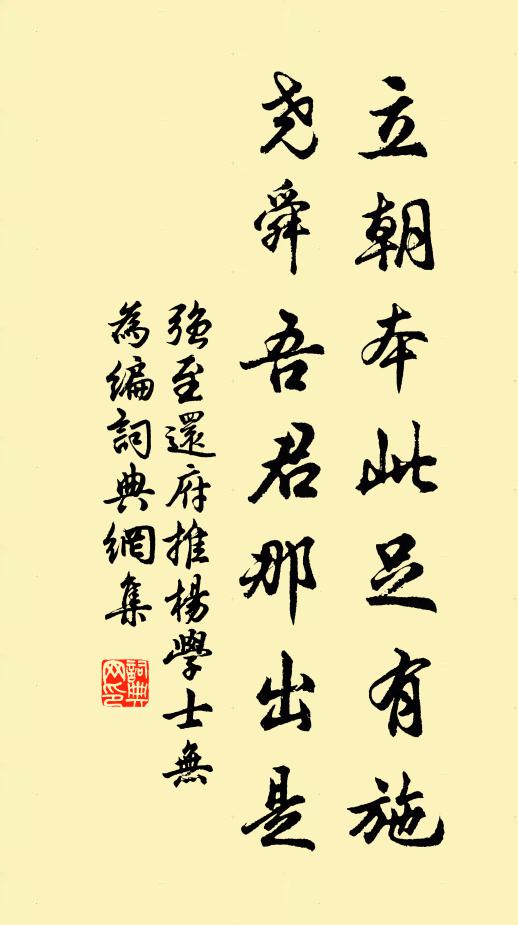 立朝本此足有施
尧舜吾君那出是
强至還府推楊學士無
為編詞典網集
詞典網印